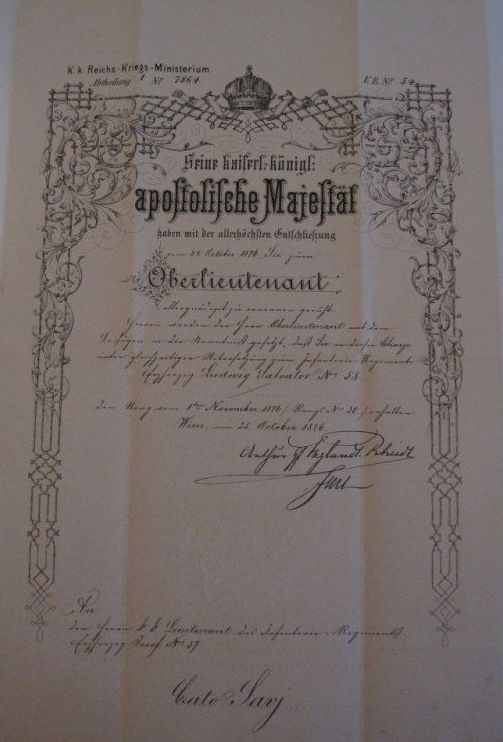 K. k. Reichs-Kriegs-Ministerium.
Abtheilung 1 No 7864
V. B. No 54
Seine kaiserl: königl:
apostolische Majestät
haben mit der allerhöchsten Entschließung
vom 24. October 1876 Sie zum
Oberlieutenant
allergnädigst zu ernennen geruht.
Hievon werden der Herr Oberlieutenant mit dem
in die Kenntniß gesetzt, daß Sie in dieser Charge
unter gleichzeitiger Übersetzung zum Infanterie-Regimente
Erzherzog Ludwig Salvator No 58
den Rang vom 1ten November 1876 / Rangs No 30 / erhalten
Wien, am 25. October 1876.
Arthur
An
den Herrn k. k. Lieutenant des Infanterie-Regiments
Erzherzog Josef No 37
Csato